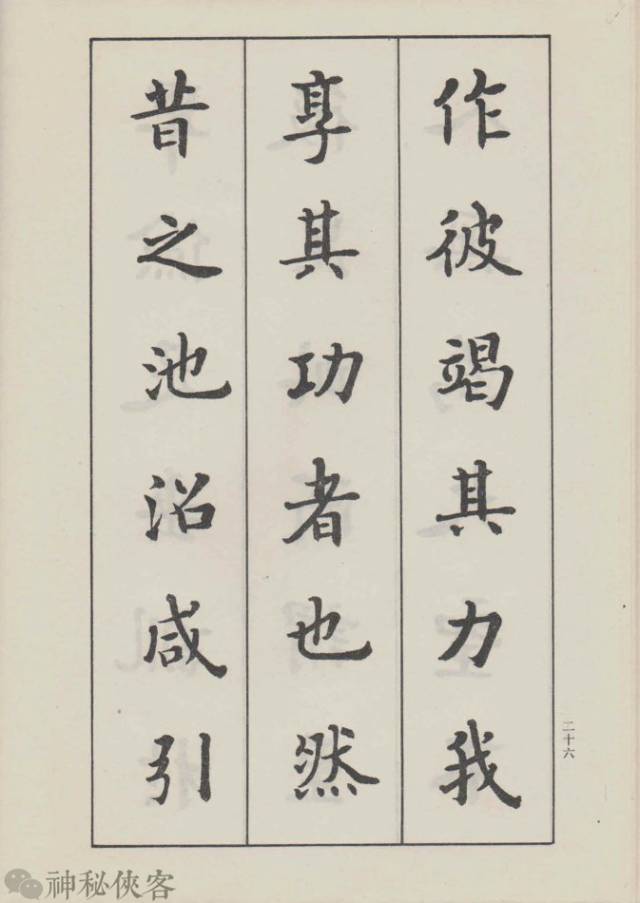 作彼竭其力我
享其功者也然
昔之池沼咸引
二十六
神秘俠客